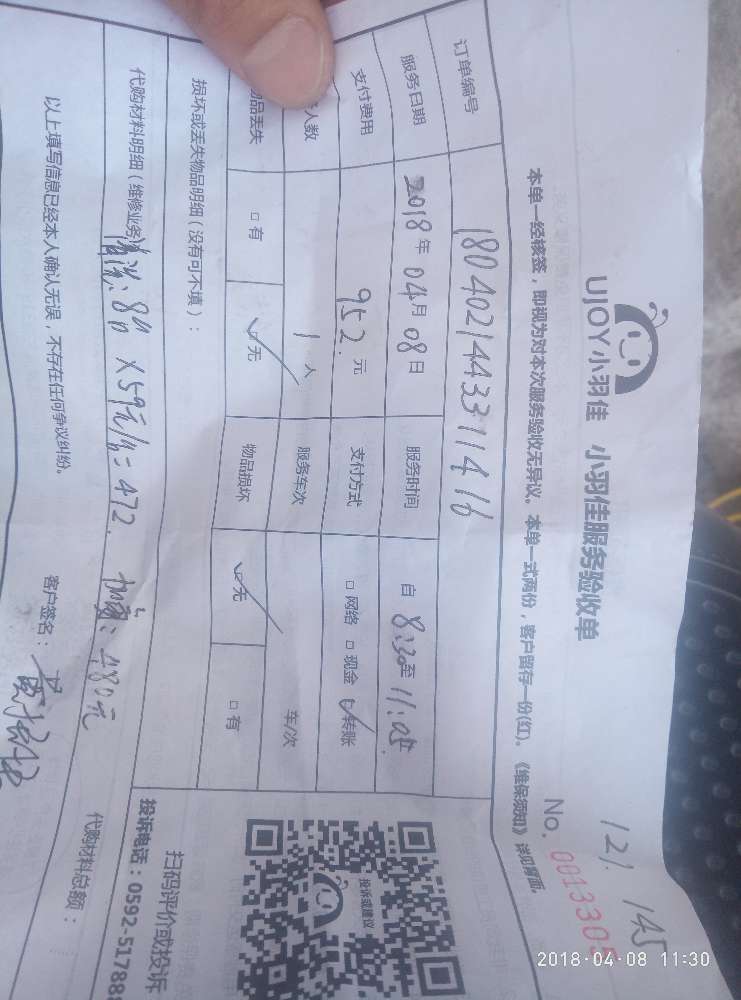 121. 145
UJOY小羽佳 小羽佳服务验收单
No. 0013305
本单一经核签，即视为对本次服务验收无异议。本单一式两份，客户留存一份(红)。《维保须知》详见背面。
订单编号 1804021443311416
服务日期 2018年 04月 08日 服务时间 自 8:30至 11:05
支付费用 952. 元 支付方式 □网络 □现金 ☑转账
人数 1 人 服务车次 车/次
品丢失 □有 ☑无 物品损坏 ☑无 □有
损坏或丢失物品明细（没有可不填）：
代购材料明细（维修业务 清洗: 8台 ×59元/台=472. 加氟: 480元
代购材料总额：
以上填写信息已经本人确认无误，不存在任何争议纠纷。
客户签名：
投诉或建议
扫码评价或投诉
投诉电话：0592-517888
2018-04-08 11:30